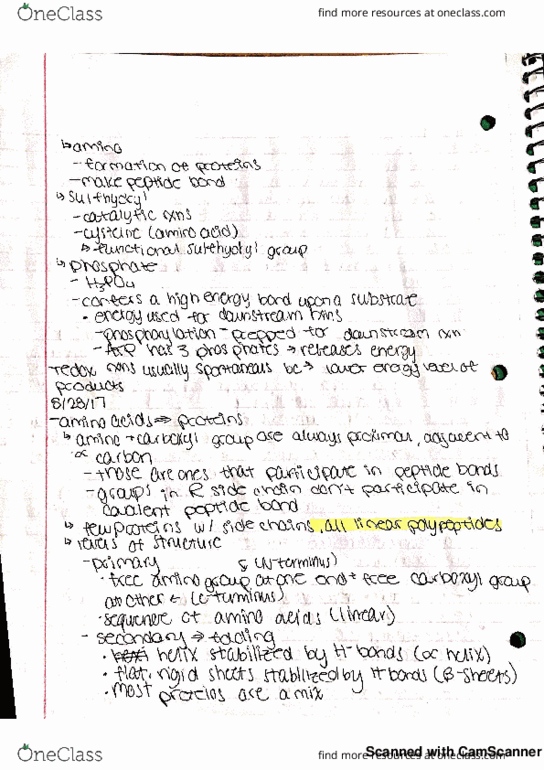 OneClass
find more resources at oneclass.com
↳ amino
- formation of proteins
- make peptide bond
↳ sulfhydryl
- catalytic rxns
- cysteine (amino acid)
↳ functional sulfhydryl group
↳ phosphate
- H3PO4
- confers a high energy bond upon a substrate
• energy used for downstream rxns
- phosphorylation - prepped for downstream rxn
- ATP has 3 phosphates → releases energy
redox rxns usually spontaneous bc → lower energy level of
products
8/28/17
- amino acids ⇒ proteins
↳ amino + carboxyl group are always proximal, adjacent to
∝ carbon
- those are ones that participate in peptide bonds
- groups in R side chain don't participate in
covalent peptide bond
↳ few proteins w/ side chains, all linear polypeptides
↳ levels of structure
- primary (N-terminus)
• free amino group at one end + free carboxyl group
at other ← (C-terminus)
• sequence of amino acids (linear)
- secondary → folding
• helix stabilized by H-bonds (∝ helix)
• flat, rigid sheets stabilized by H bonds (B-sheets)
• most proteins are a mix
OneClass
find more resources at oneclass.com
Scanned with CamScanner